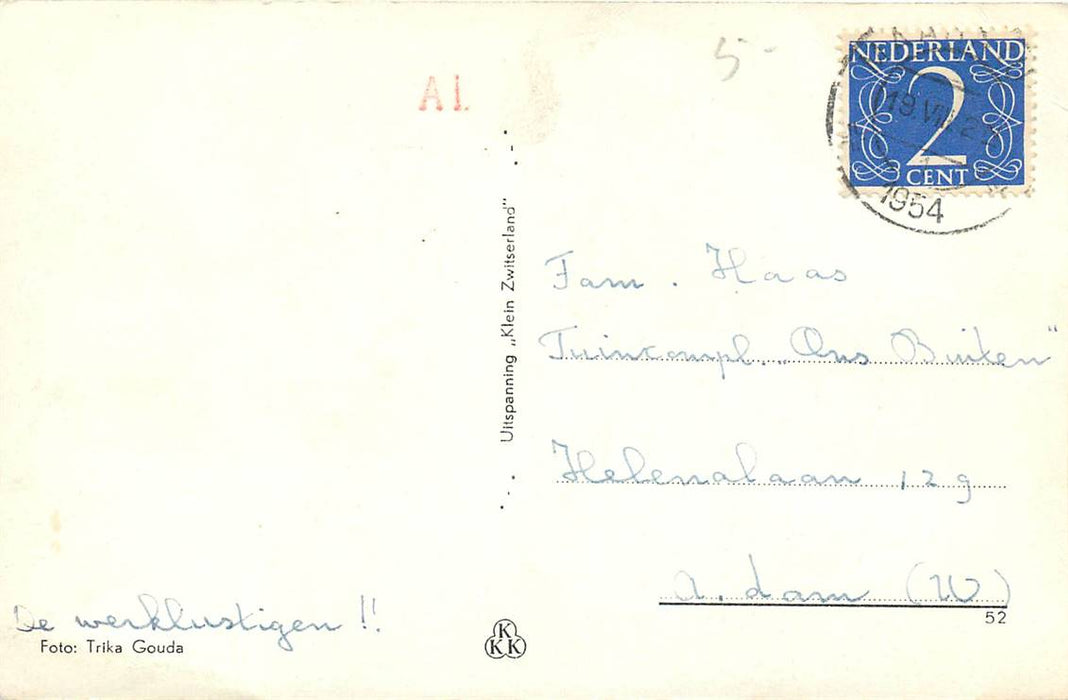 5-
A1.
NEDERLAND
2
CENT
1954
Uitspanning „Klein Zwitserland"
Fam. Haas
Tuincompl. „Ons Buiten"
Helenalaan 129
A.dam (W)
52
De werklustigen !!
Foto: Trika Gouda
K
KK